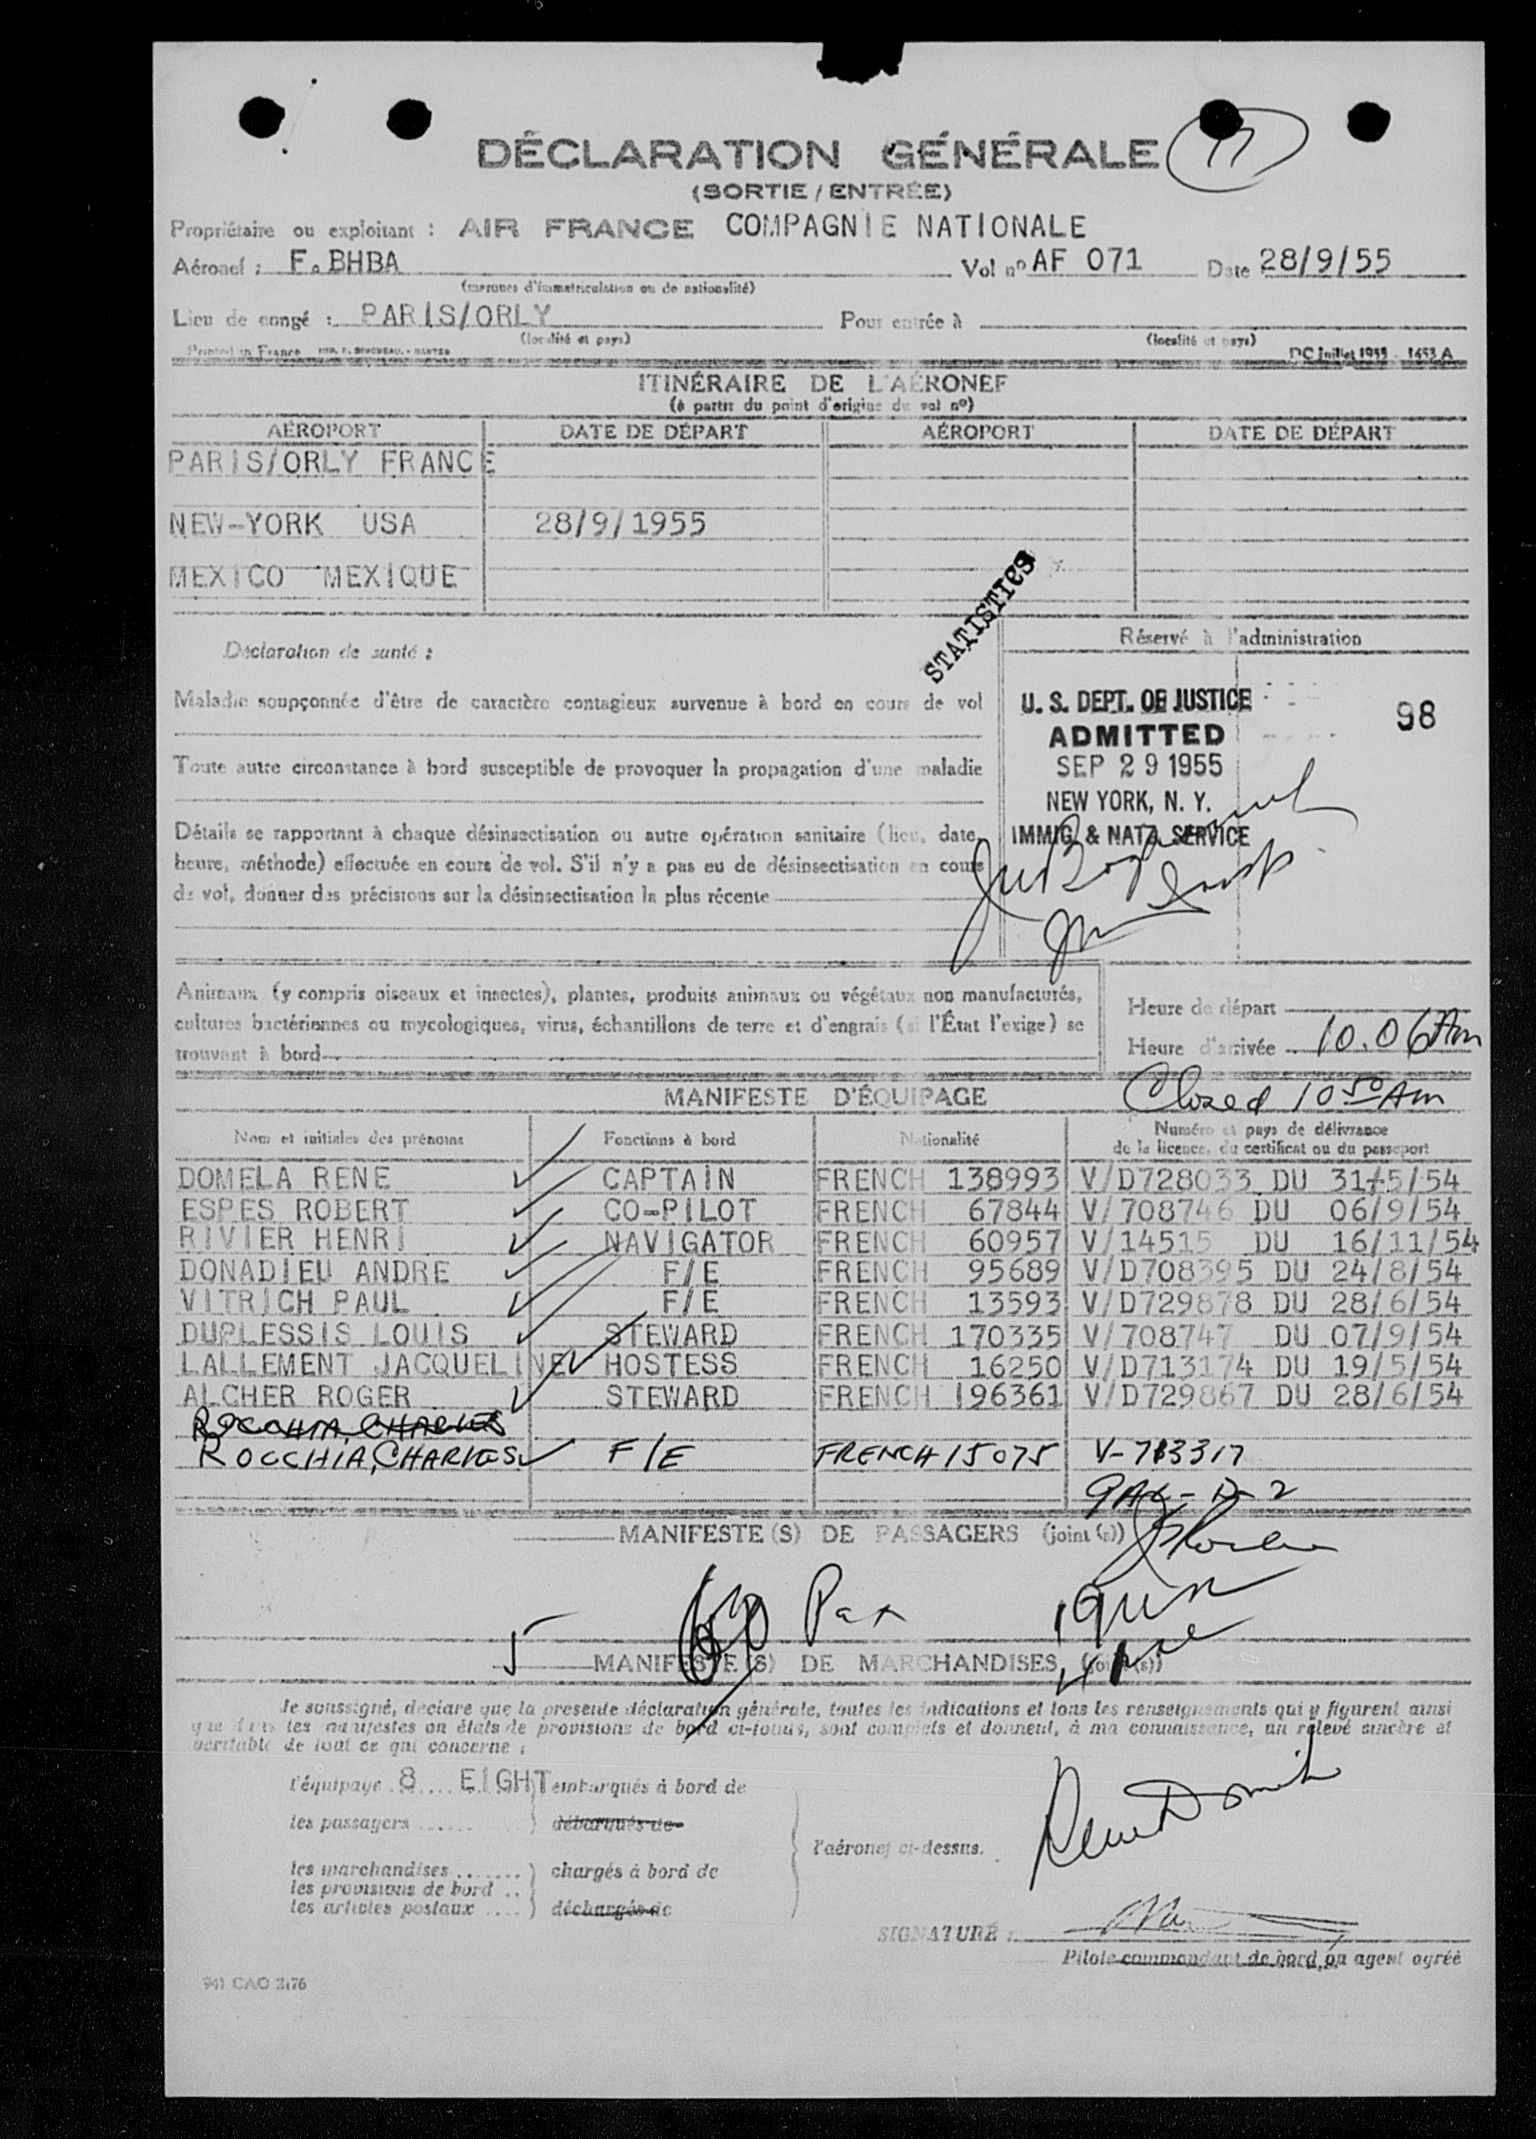 DÉCLARATION GÉNÉRALE
(SORTIE / ENTRÉE)
Propriétaire ou exploitant : AIR FRANCE COMPAGNIE NATIONALE
Aéronef : F.BHBA Vol nº AF 071 Date 28/9/55
(marques d'immatriculation ou de nationalité)
Lieu de congé : PARIS/ORLY Pour entrée à
(localité et pays) (localité et pays)
Printed in France DC Juillet 1955 - 1653 A
ITINÉRAIRE DE L'AÉRONEF
(à partir du point d'origine du vol nº)
AÉROPORT DATE DE DÉPART AÉROPORT DATE DE DÉPART
PARIS/ORLY FRANCE
NEW-YORK USA 28/9/1955
MEXICO MEXIQUE
STATISTICS
Réservé à l'administration
Déclaration de santé :
Maladie soupçonnée d'être de caractère contagieux survenue à bord en cours de vol
U. S. DEPT. OF JUSTICE
98
ADMITTED
Toute autre circonstance à bord susceptible de provoquer la propagation d'une maladie
SEP 29 1955
NEW YORK, N. Y.
IMMIG. & NATZ. SERVICE
Détails se rapportant à chaque désinsectisation ou autre opération sanitaire (lieu, date,
heure, méthode) effectuée en cours de vol. S'il n'y a pas eu de désinsectisation en cours
de vol, donner des précisions sur la désinsectisation la plus récente
Animaux (y compris oiseaux et insectes), plantes, produits animaux ou végétaux non manufacturés,
cultures bactériennes ou mycologiques, virus, échantillons de terre et d'engrais (si l'État l'exige) se
trouvant à bord
Heure de départ
Heure d'arrivée 10.06 Am
MANIFESTE D'ÉQUIPAGE
Closed 10 50 Am
Nom et initiales des prénoms Fonctions à bord Nationalité Numéro et pays de délivrance
de la licence, du certificat ou du passeport
DOMELA RENE CAPTAIN FRENCH 138993 V/D728033 DU 31/5/54
ESPES ROBERT CO-PILOT FRENCH 67844 V/708746 DU 06/9/54
RIVIER HENRI NAVIGATOR FRENCH 60957 V/14515 DU 16/11/54
DONADIEU ANDRE F/E FRENCH 95689 V/D708395 DU 24/8/54
VITRICH PAUL F/E FRENCH 13593 V/D729878 DU 28/6/54
DUPLESSIS LOUIS STEWARD FRENCH 170335 V/708747 DU 07/9/54
LALLEMENT JACQUELINE HOSTESS FRENCH 16250 V/D713174 DU 19/5/54
ALCHER ROGER STEWARD FRENCH 196361 V/D729867 DU 28/6/54
ROCCHIA, CHARLES
ROCCHIA, CHARLES F/E FRENCH 15075 V-713317
MANIFESTE (S) DE PASSAGERS (joint (s))
Pax
5
MANIFESTE (S) DE MARCHANDISES (joint (s))
Je soussigné, déclare que la présente déclaration générale, toutes les indications et tous les renseignements qui y figurent ainsi
que dans les manifestes ou états de provisions de bord ci-joints, sont complets et donnent, à ma connaissance, un relevé sincère et
véritable de tout ce qui concerne :
l'équipage 8 EIGHT embarqués à bord de
les passagers débarqués de
l'aéronef ci-dessus.
les marchandises chargés à bord de
les provisions de bord
les articles postaux déchargés de
SIGNATURE :
Pilote commandant de bord, ou agent agréé
941 CAO 2176